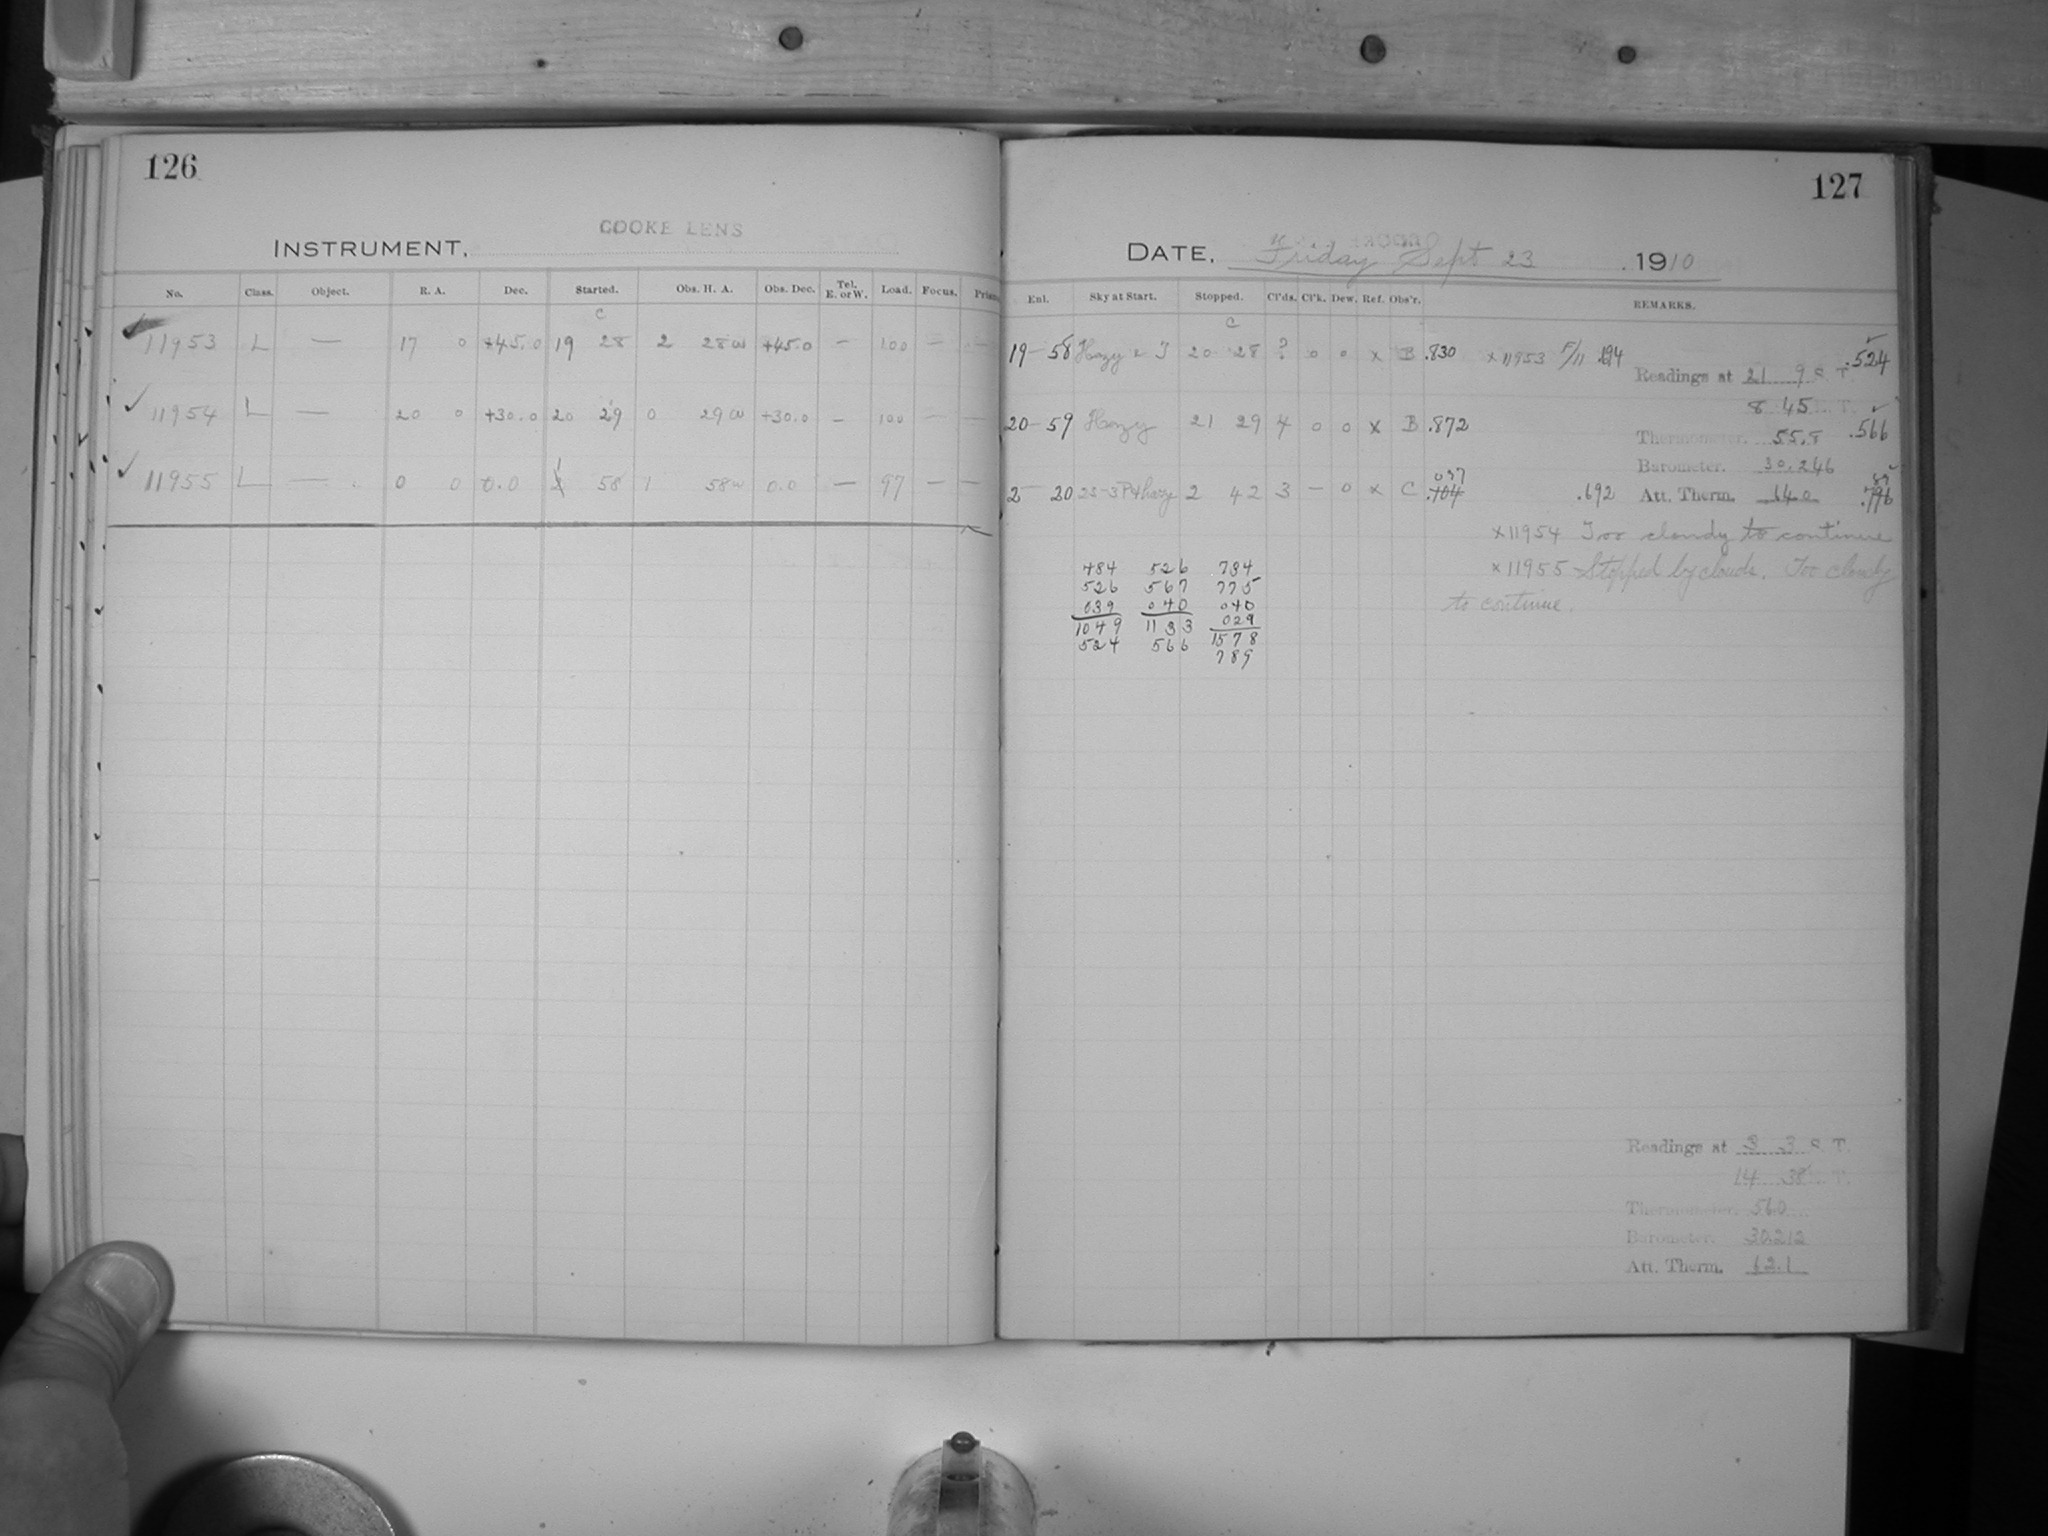 126
COOKE LENS
INSTRUMENT,
No. Class. Object. R. A. Dec. Started. Obs. H. A. Obs. Dec. Tel. E. or W. Load. Focus. Prism
C
11953 L — 17 0 +45.0 19 28 2 28 w +45.0 — 100 — —
11954 L — 20 0 +30.0 20 29 0 29 w +30.0 — 100 — —
11955 L — 0 0 0.0 1 58 1 58 w 0.0 — 97 — —
127
DATE, Friday Sept 23 1910
Enl. Sky at Start. Stopped. Cl'ds. Cl'k. Dew. Ref. Obs'r. REMARKS.
C
19-58 Hazy 20 28 ? 0 0 x B .830 x 11953 F/11 .524
Readings at 21 9 S. T.
8 45 T.
20-59 Hazy 21 29 4 0 0 x B .872 .566
Thermometer. 55.8
Barometer. 30.246
037
2 20 2 42 3 — 0 x C .104 .692 Att. Therm. 64.0
x 11954 Too cloudy to continue
x 11955 Stopped by clouds. Too cloudy
to continue.
484 526 734
526 567 775
039 040 040
1049 1133 029
524 566 1578
789
Readings at 3 3 S. T.
14 38 T.
Thermometer. 56.0
Barometer. 30.212
Att. Therm. 62.1